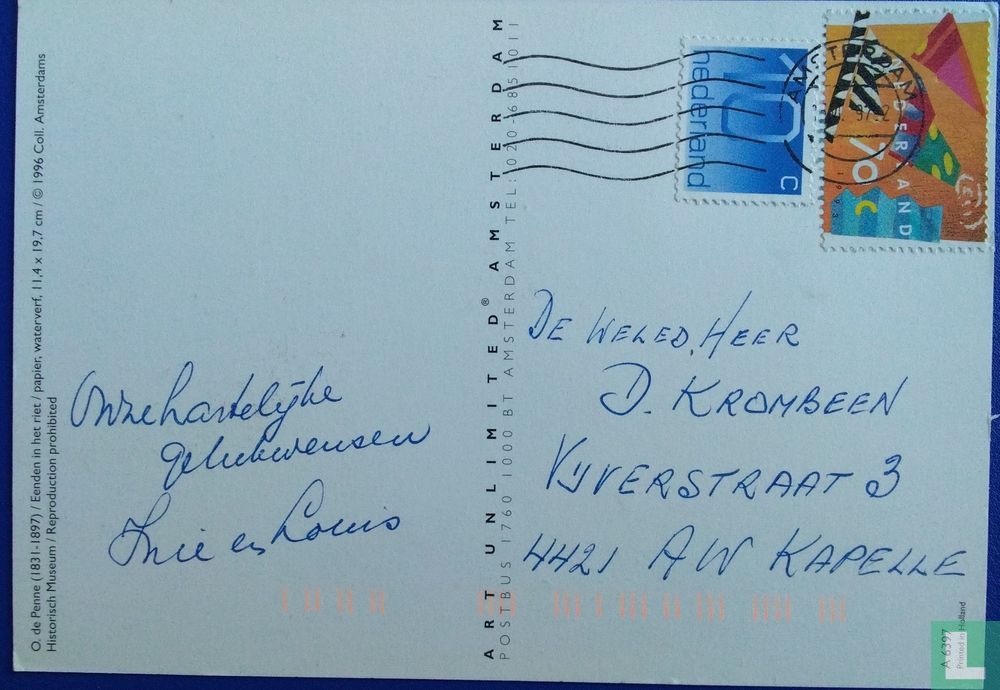 O. de Penne (1831-1897) / Eenden in het riet / papier, waterverf, 11,4 x 19,7 cm / © 1996 Coll. Amsterdams
Historisch Museum / Reproduction prohibited
Onze hartelijke
gelukwensen
en Louis
ART UNLIMITED® AMSTERDAM
POSTBUS 1760 1000 BT AMSTERDAM TEL: 020-6851011
nederland
C
AMSTERDAM
NEDERLAND
70 C
1993
DE WELED. HEER
D. KROMBEEN
VIJVERSTRAAT 3
4421 AW KAPELLE
A 6397
Printed in Holland